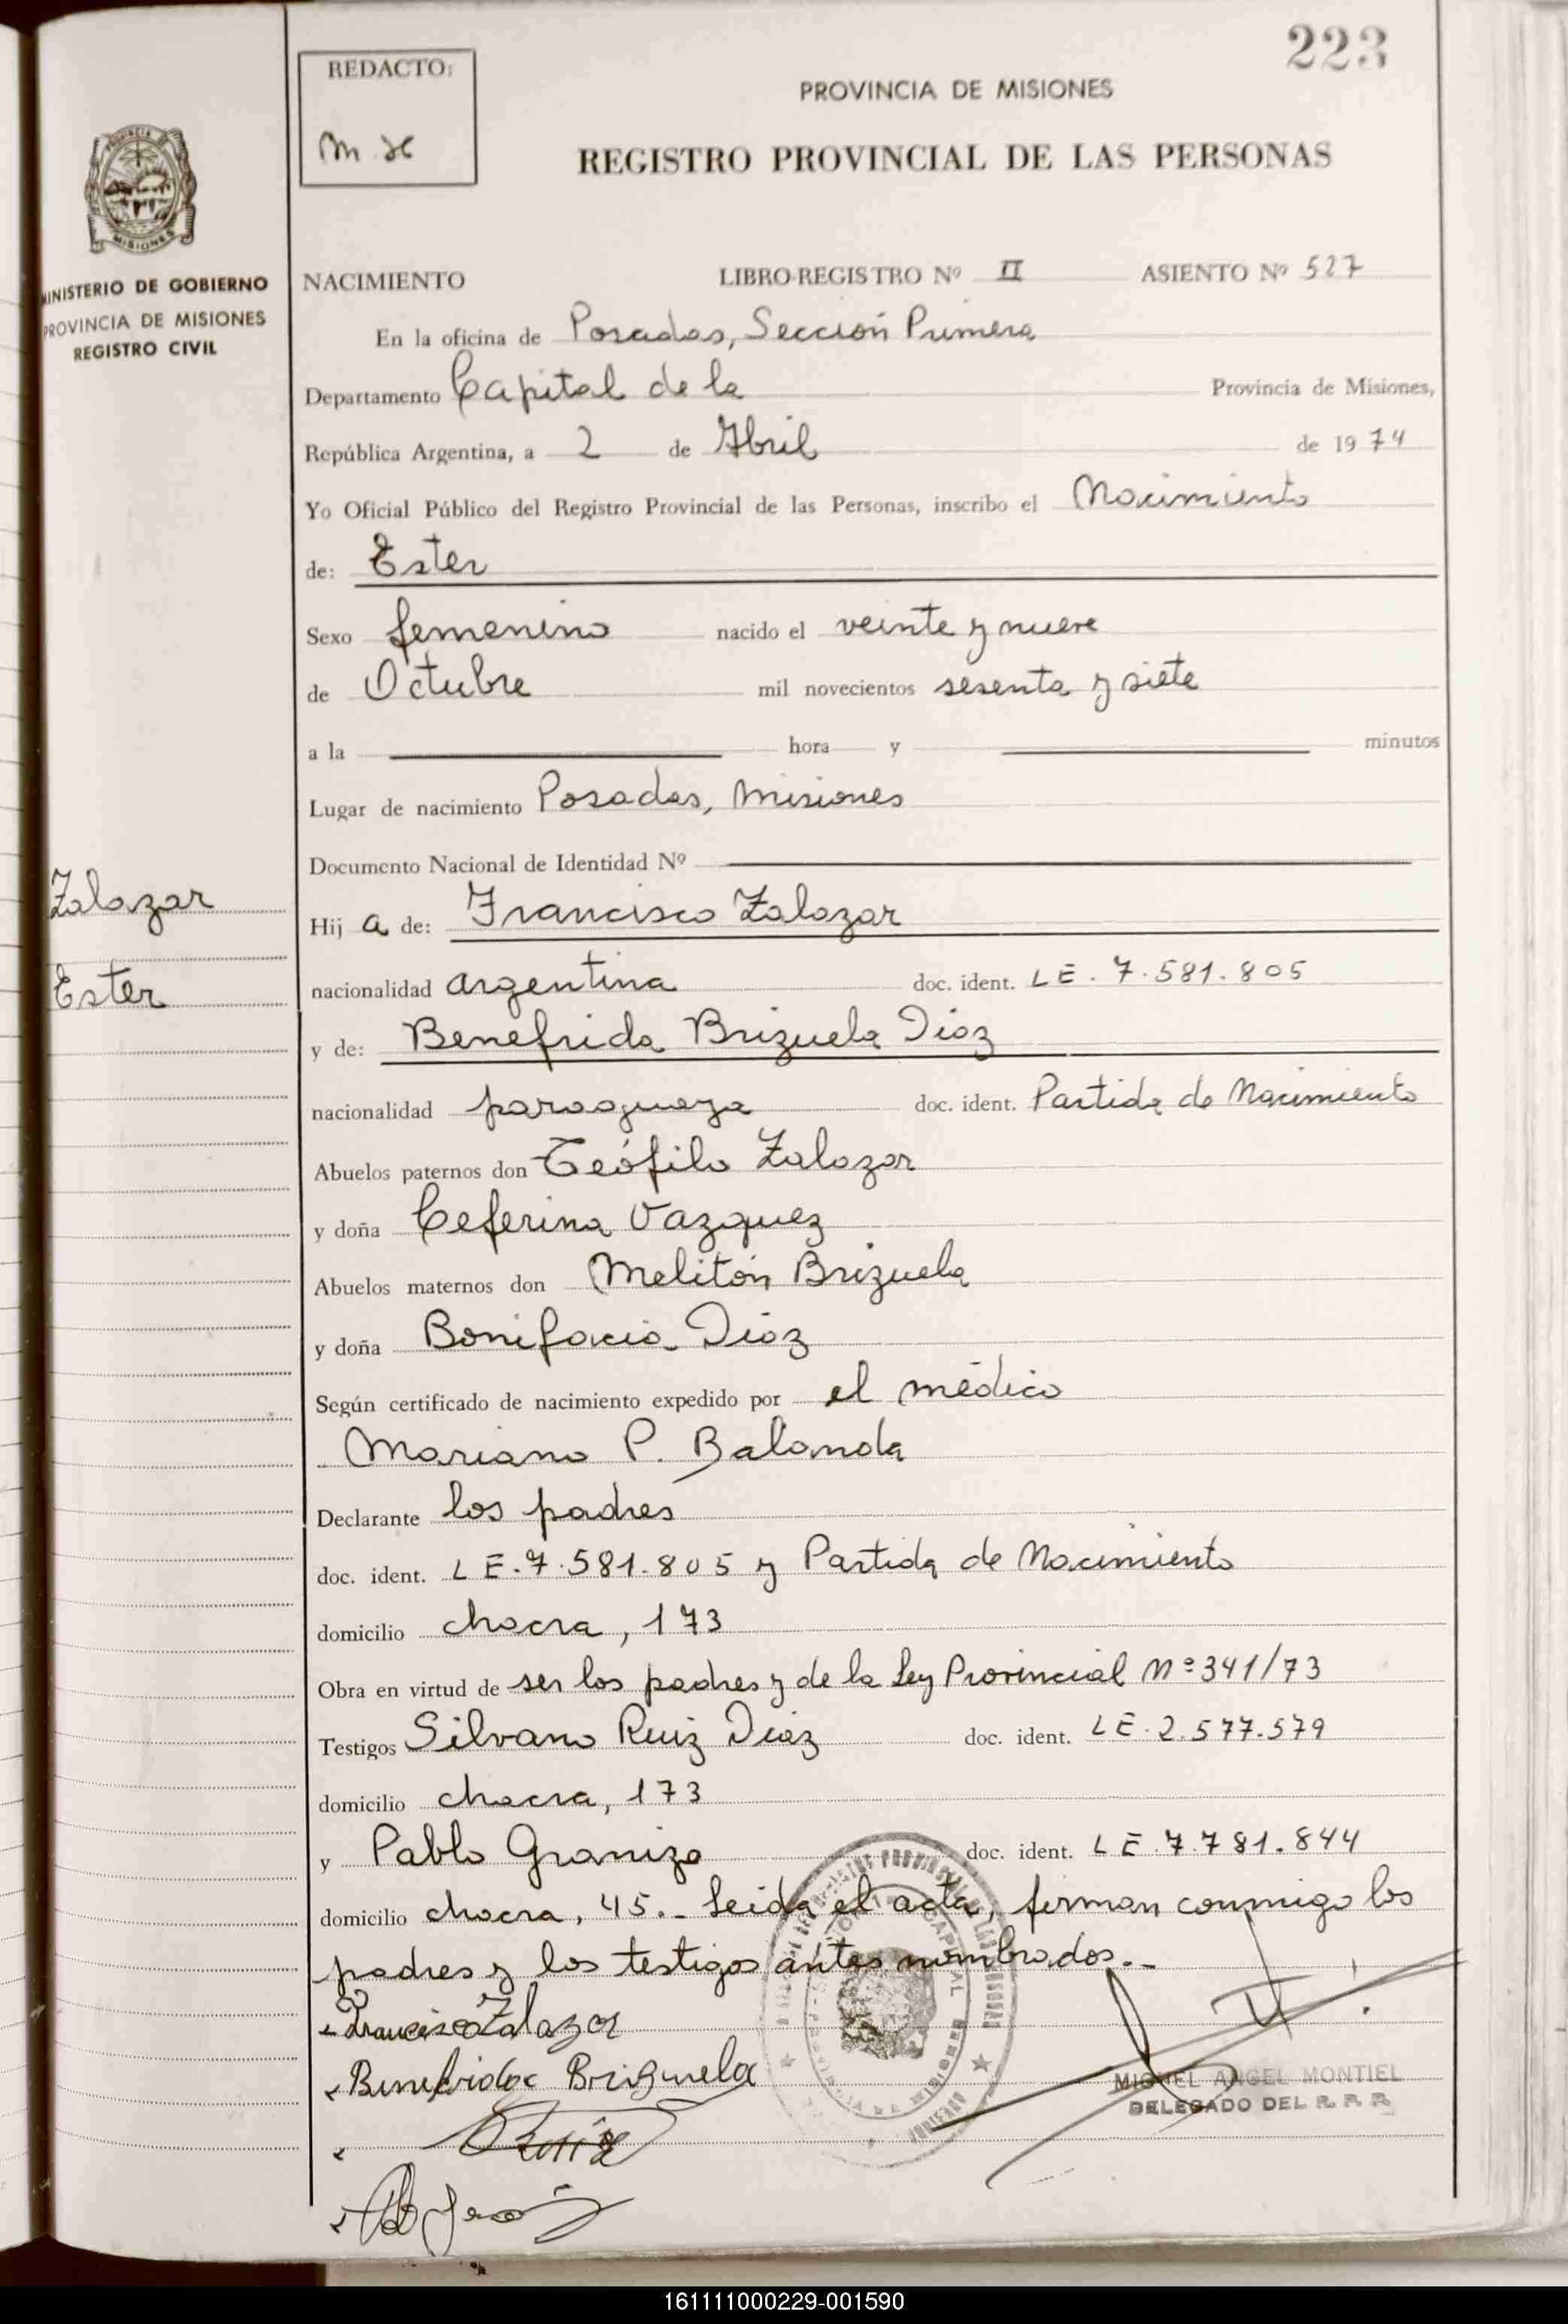 223
REDACTO:
PROVINCIA DE MISIONES
REGISTRO PROVINCIAL DE LAS PERSONAS
MISIONES
MINISTERIO DE GOBIERNO
PROVINCIA DE MISIONES
REGISTRO CIVIL
NACIMIENTO LIBRO-REGISTRO Nº II ASIENTO Nº 527
En la oficina de Posadas, Sección Primera
Departamento Capital de la Provincia de Misiones,
República Argentina, a 2 de Abril de 1974
Yo Oficial Público del Registro Provincial de las Personas, inscribo el Nacimiento
de: Ester
Sexo femenino nacido el veinte y nueve
de Octubre mil novecientos sesenta y siete
a la hora y minutos
Lugar de nacimiento Posadas, Misiones
Documento Nacional de Identidad Nº
Zalazar
Hij a de: Francisco Zalazar
Ester
nacionalidad argentina doc. ident. LE. 7.581.805
y de: Benefrida Brizuela Diaz
nacionalidad paraguaya doc. ident. Partida de Nacimiento
Abuelos paternos don Teófilo Zalazar
y doña Ceferina Vazquez
Abuelos maternos don Melitón Brizuela
y doña Bonifacia Diaz
Según certificado de nacimiento expedido por el médico
Mariano P. Balanda
Declarante los padres
doc. ident. LE. 7.581.805 y Partida de Nacimiento
domicilio chacra, 173
Obra en virtud de ser los padres y de la Ley Provincial Nº 341/73
Testigos Silvano Ruiz Diaz doc. ident. LE. 2.577.579
domicilio chacra, 173
y Pablo Granizo doc. ident. LE. 7.781.844
domicilio chacra, 45.- Leida el acta, firman conmigo los
padres y los testigos antes nombrados.-
Francisco Zalazar
Benefrida Brizuela
MIGUEL ANGEL MONTIEL
DELEGADO DEL R. P. P.
161111000229-001590